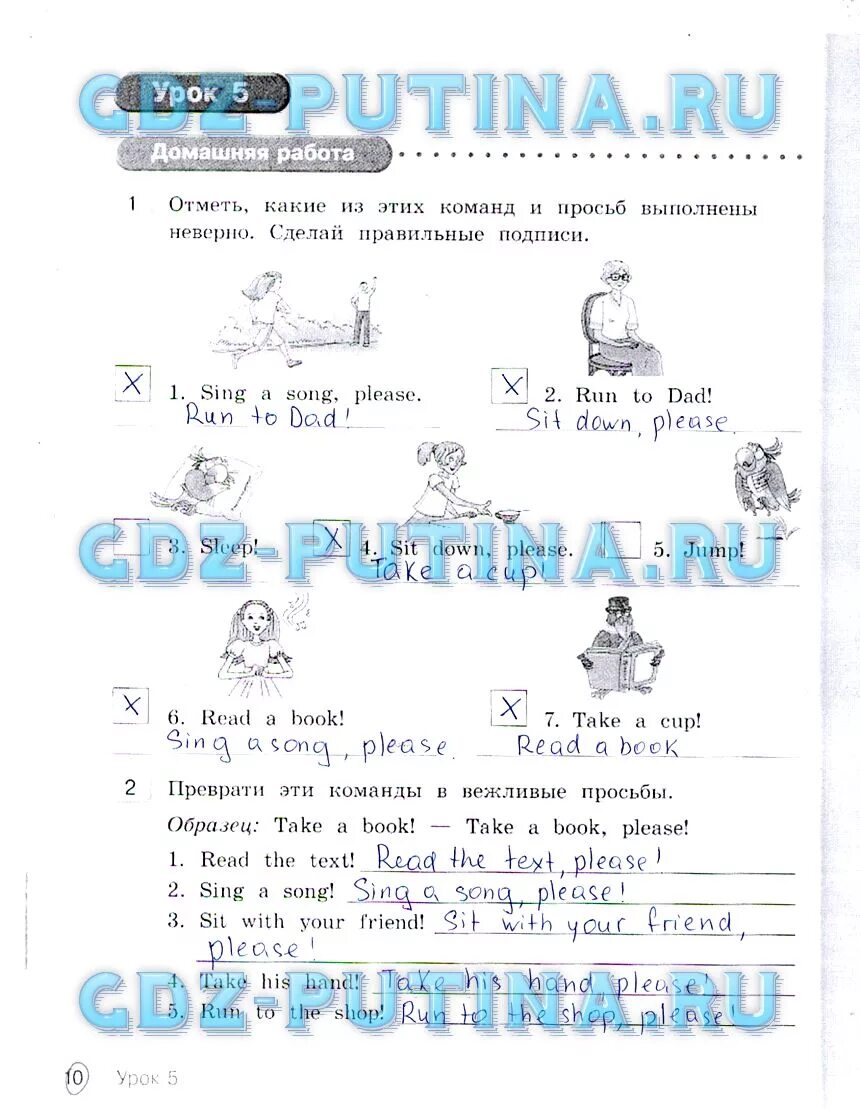 GDZ-PUTINA.RU
Урок 5
Домашняя работа
1 Отметь, какие из этих команд и просьб выполнены
неверно. Сделай правильные подписи.
X 1. Sing a song, please. X 2. Run to Dad!
Run to Dad! Sit down, please.
GDZ-PUTINA.RU
3. Sleep! X 4. Sit down, please. 5. Jump!
Take a cup!
X 6. Read a book! X 7. Take a cup!
Sing a song, please. Read a book
2 Преврати эти команды в вежливые просьбы.
Образец: Take a book! — Take a book, please!
1. Read the text! Read the text, please!
2. Sing a song! Sing a song, please!
3. Sit with your friend! Sit with your friend,
please!
GDZ-PUTINA.RU
4. Take his hand! Take his hand, please!
5. Run to the shop! Run to the shop, please!
10 Урок 5